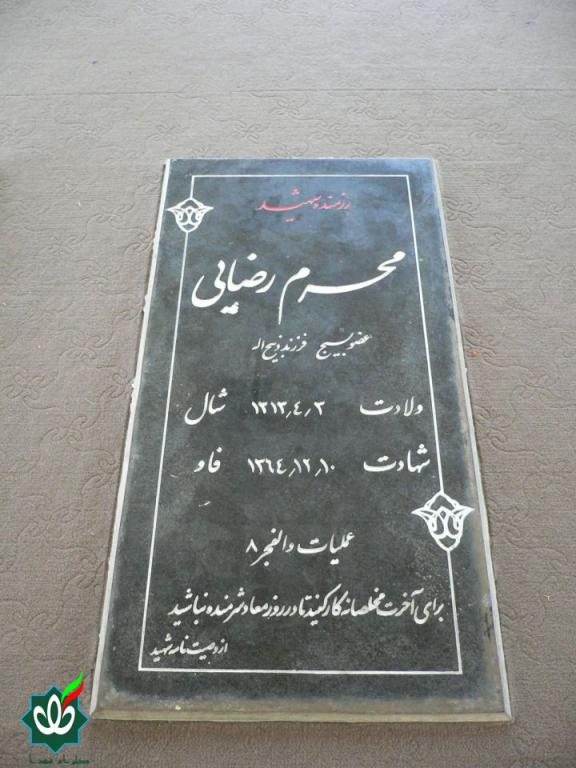 رزمنده شهید
محرم رضایی
عضو بسیج فرزند ذبیح اله
ولادت ۱۳۱۳٫۴٫۳ شال
شهادت ۱۳۶۴٫۱۲٫۱۰ فاو
عملیات والفجر ۸
برای آخرت مخلصانه کار کنید تا در روز معاد شرمنده نباشید
از وصیت نامه شهید